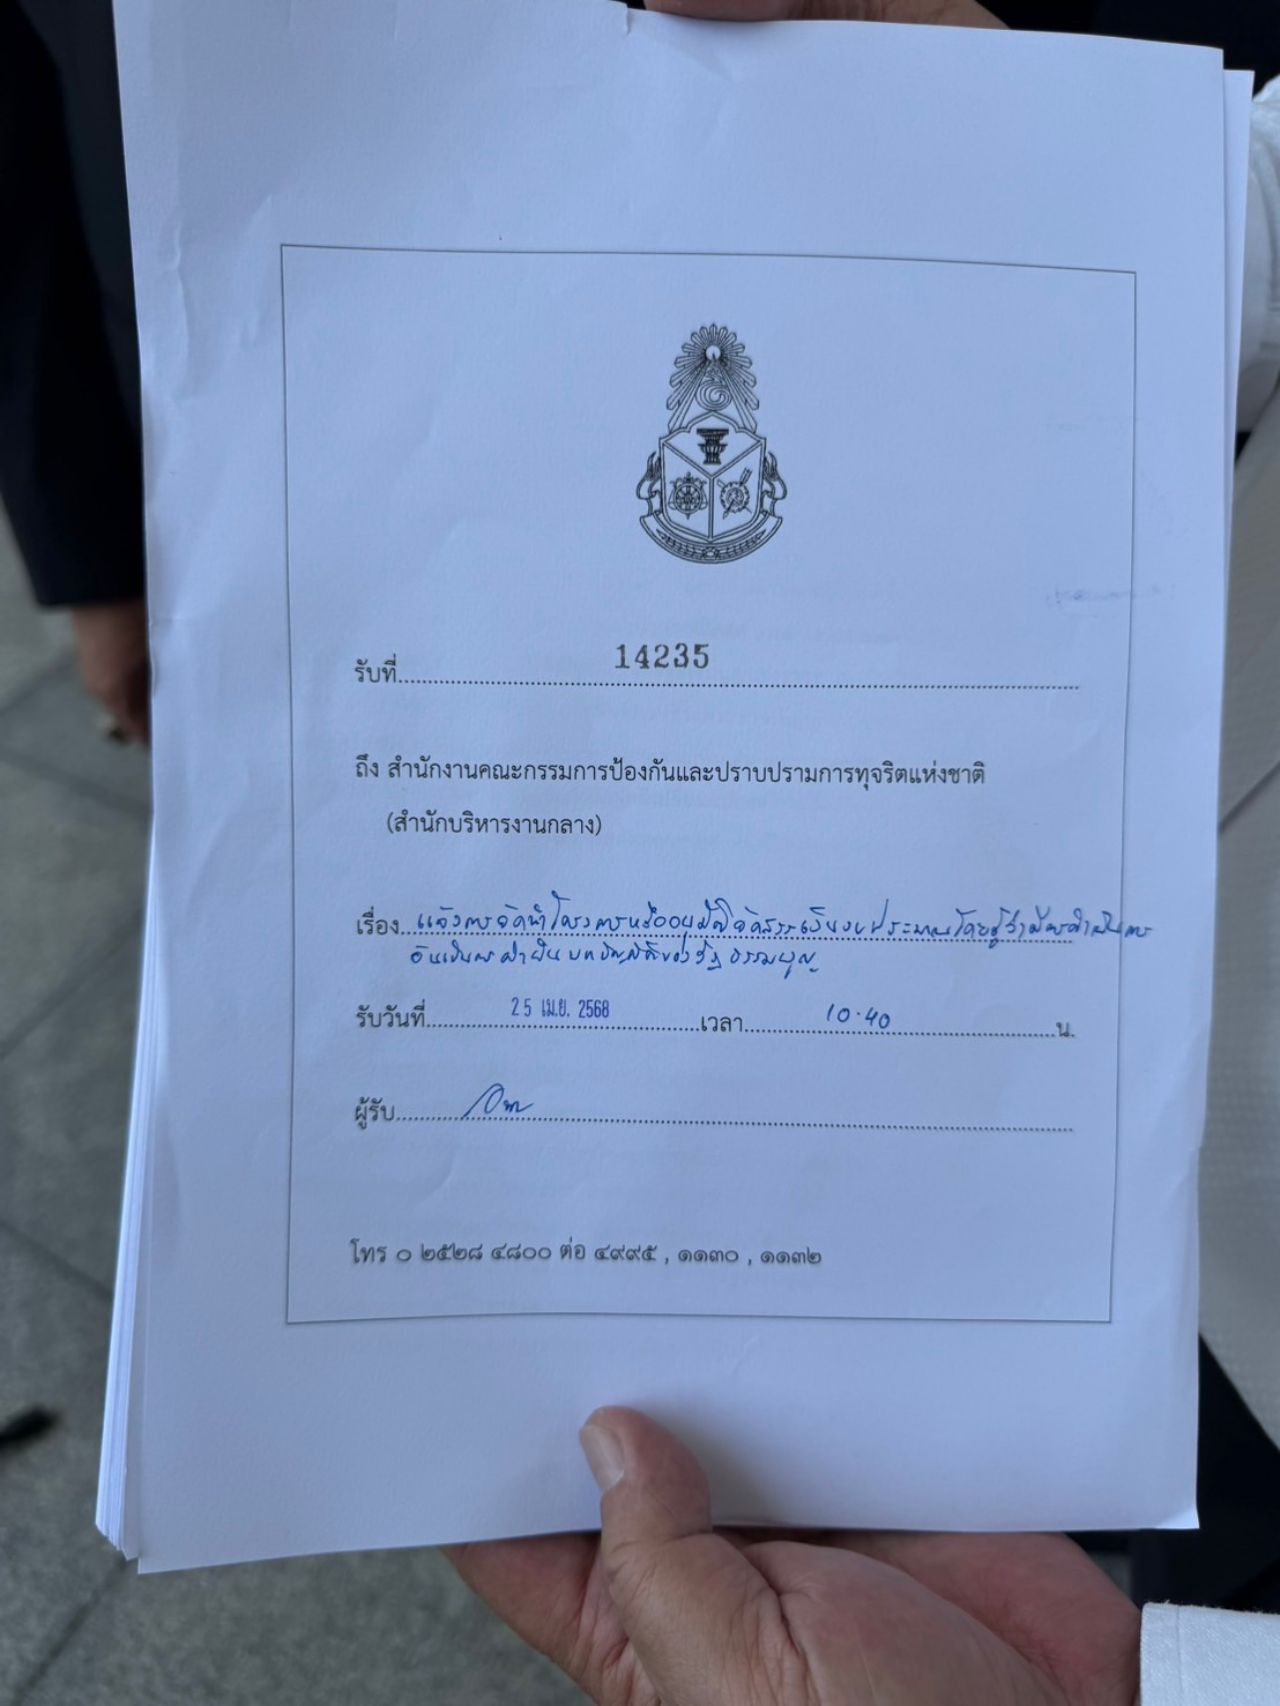 รับที่ 14235
ถึง สำนักงานคณะกรรมการป้องกันและปราบปรามการทุจริตแห่งชาติ
(สำนักบริหารงานกลาง)
เรื่อง แจ้งการจัดทำโครงการหรืออนุมัติจัดสรรเงินงบประมาณโดยรู้ว่ามีการดำเนินการ
อันเป็นการฝ่าฝืนบทบัญญัติของรัฐธรรมนูญ
รับวันที่ 25 เม.ย. 2568 เวลา 10.40 น.
ผู้รับ
โทร ๐ ๒๕๒๘ ๔๘๐๐ ต่อ ๔๙๙๕ , ๑๑๓๐ , ๑๑๓๒